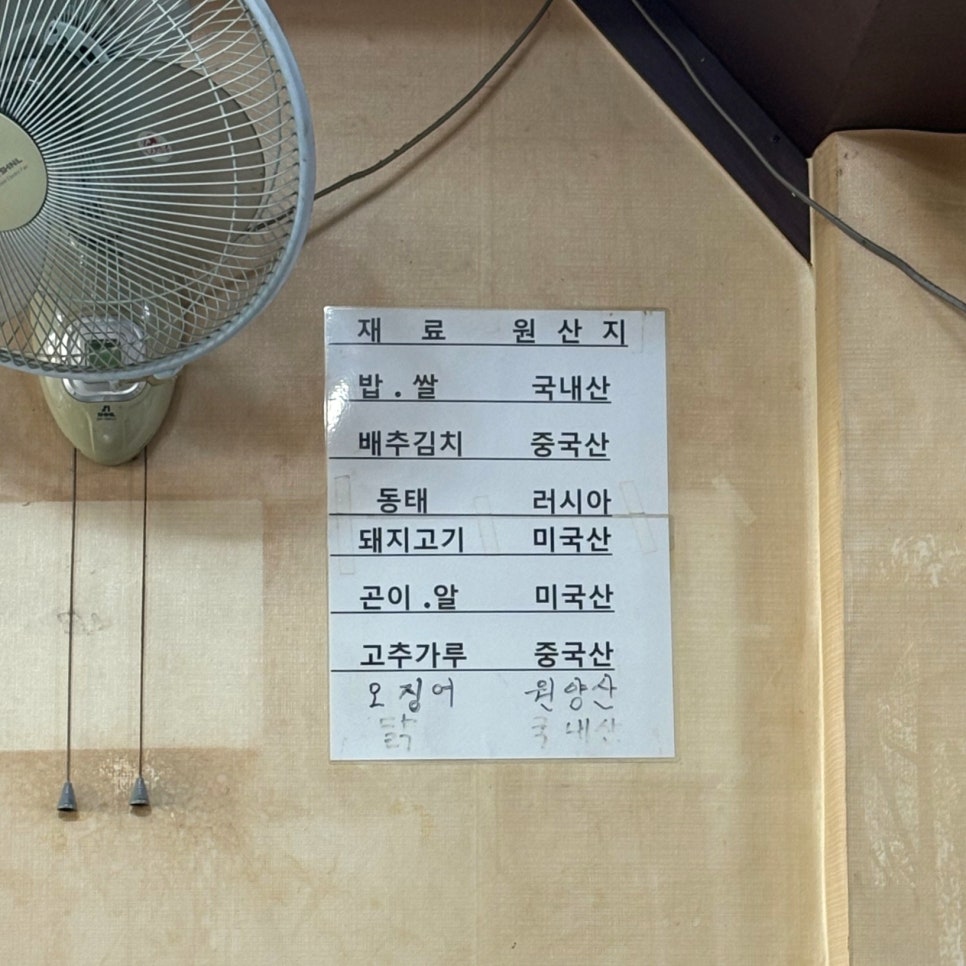 SHINIL
재 료 원 산 지
밥 . 쌀 국내산
배추김치 중국산
동태 러시아
돼지고기 미국산
곤이 . 알 미국산
고추가루 중국산
오징어 원양산
닭 국내산